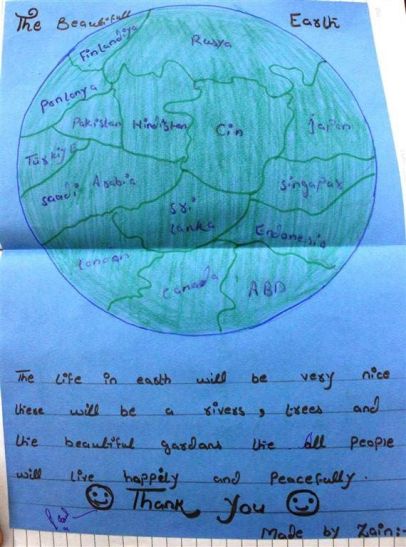 The Beautifull Earth
Finlandiya
Rusya
Ponlonya
Pakistan
Hindistan
Cin
Japan
Türkiye
Saudi Arabia
Singapur
Sri
Lanka
Endonesia
London
Canada
ABD
The life in earth will be very nice
there will be a rivers, trees and
the beautiful gardans the all people
will live happily and peacefully.
Thank You
Made by Zain:-